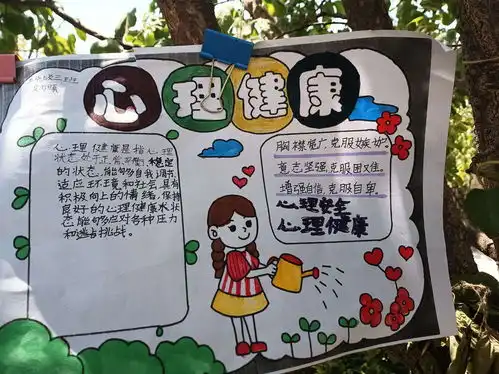 心理健康
心理健康是指心理
状态处于正常 稳定
的状态,能够自我调节,
适应环境和社会具有
积极向上的情绪,保持
良好的心理健康水状
态能够应对各种压力
和 挑战。
胸襟宽广克服嫉妒,
意志坚强克服困难.
增强自信,克服自卑.
心理安全
心理健康